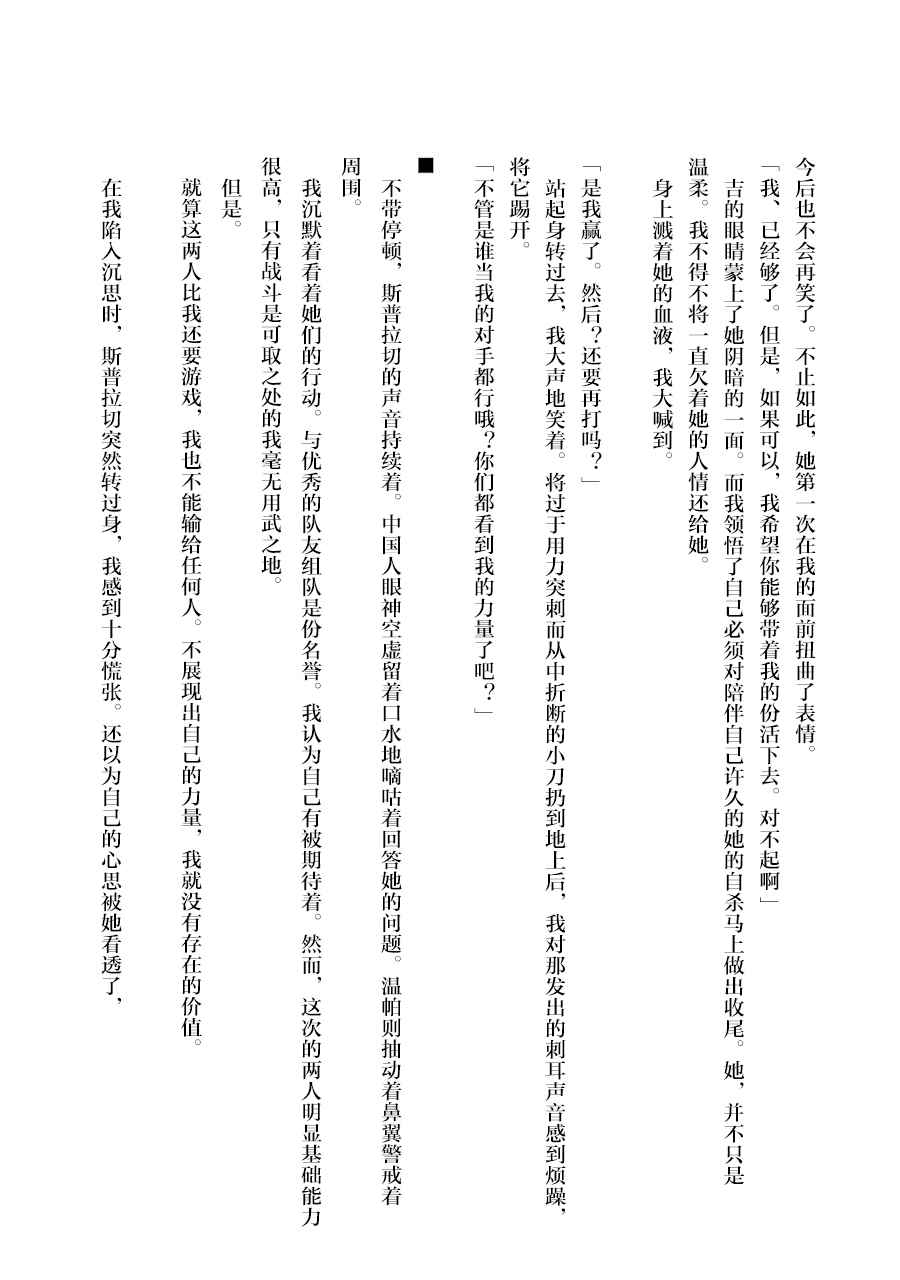 今后也不会再笑了。不止如此，她第一次在我的面前扭曲了表情。
「我、已经够了。但是，如果可以，我希望你能够带着我的份活下去。对不起啊」
吉的眼睛蒙上了她阴暗的一面。而我领悟了自己必须对陪伴自己许久的她的自杀马上做出收尾。她，并不只是
温柔。我不得不将一直欠着她的人情还给她。
身上溅着她的血液，我大喊到。
「是我赢了。然后？还要再打吗？」
站起身转过去，我大声地笑着。将过于用力突刺而从中折断的小刀扔到地上后，我对那发出的刺耳声音感到烦躁，
将它踢开。
「不管是谁当我的对手都行哦？你们都看到我的力量了吧？」
■
不带停顿，斯普拉切的声音持续着。中国人眼神空虚留着口水地嘀咕着回答她的问题。温帕则抽动着鼻翼警戒着
周围。
我沉默着看着她们的行动。与优秀的队友组队是份名誉。我认为自己有被期待着。然而，这次的两人明显基础能力
很高，只有战斗是可取之处的我毫无用武之地。
但是。
就算这两人比我还要游戏，我也不能输给任何人。不展现出自己的力量，我就没有存在的价值。
在我陷入沉思时，斯普拉切突然转过身，我感到十分慌张。还以为自己的心思被她看透了，